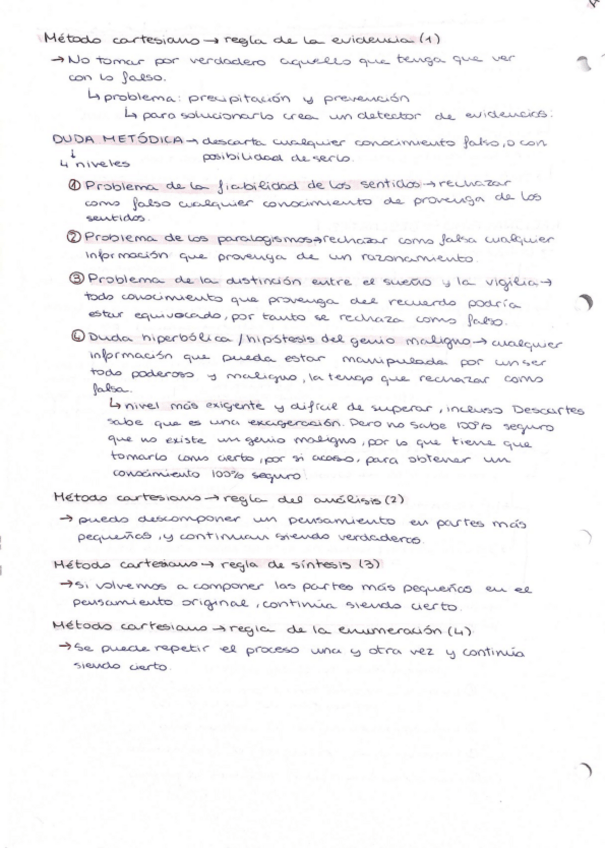 Método cartesiano → regla de la evidencia (1)
→ No tomar por verdadero aquello que tenga que ver
con lo falso.
↳ problema: precipitación y prevención
↳ para solucionarlo crea un detector de evidencias:
DUDA METÓDICA → descarta cualquier conocimiento falso, o con
posibilidad de serlo.
↓
4 niveles
① Problema de la fiabilidad de los sentidos → rechazar
como falso cualquier conocimiento de provenga de los
sentidos.
② Problema de los paralogismos → rechazar como falsa cualquier
información que provenga de un razonamiento.
③ Problema de la distinción entre el sueño y la vigilia →
todo conocimiento que provenga del recuerdo podría
estar equivocado, por tanto se rechaza como falso.
④ Duda hiperbólica / hipótesis del genio maligno → cualquier
información que pueda estar manipulada por un ser
todo poderoso y maligno, la tengo que rechazar como
falsa.
↳ nivel más exigente y difícil de superar, incluso Descartes
sabe que es una exageración. Pero no sabe 100% seguro
que no existe un genio maligno, por lo que tiene que
tomarlo como cierto, por si acaso, para obtener un
conocimiento 100% seguro.
Método cartesiano → regla del análisis (2)
→ puedo descomponer un pensamiento en partes más
pequeñas, y continuan siendo verdaderas.
Método cartesiano → regla de síntesis (3)
→ Si volvemos a componer las partes más pequeñas en el
pensamiento original, continúa siendo cierto.
Método cartesiano → regla de la enumeración (4)
→ Se puede repetir el proceso una y otra vez y continúa
siendo cierto.